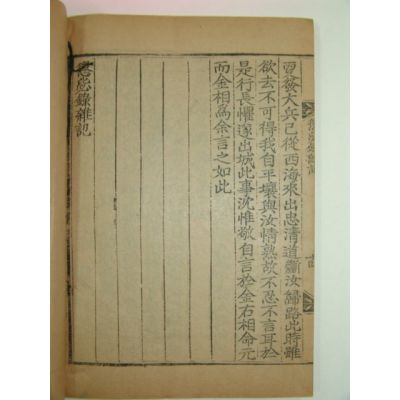 更發大兵已從西海來出忠淸道斷汝歸路此時雖
欲去不可得我自平壤與汝情熟故不忍不言耳於
是行長懼遂出城此事沈惟敬自言於金右相命元
而金相爲余言之如此
懲毖錄雜記